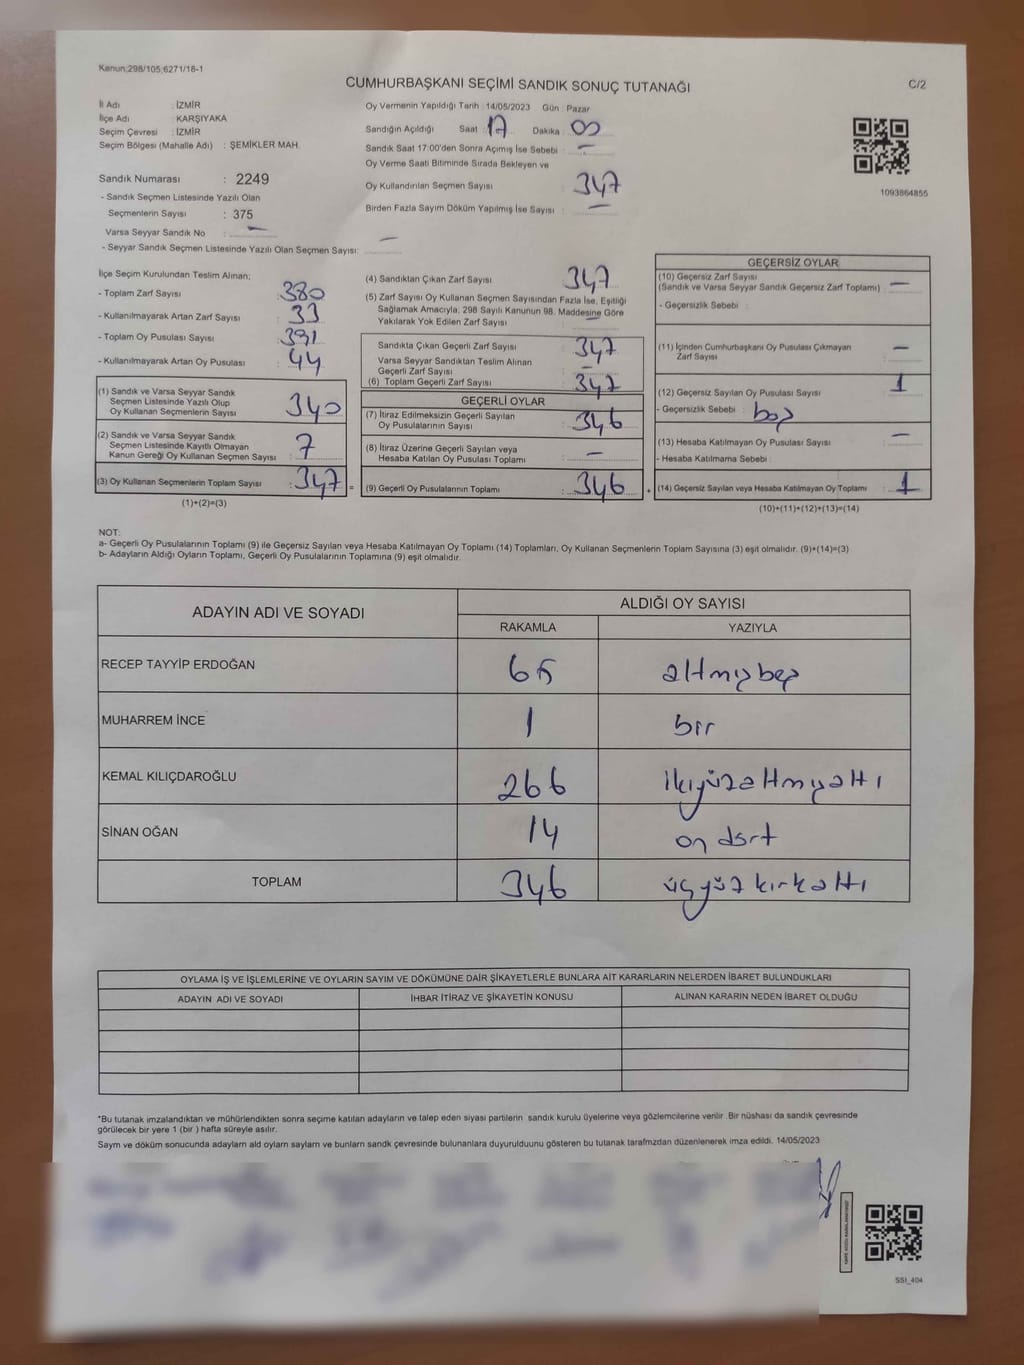 Kanun:298/105,6271/18-1
CUMHURBAŞKANI SEÇİMİ SANDIK SONUÇ TUTANAĞI
C/2
İl Adı : İZMİR
İlçe Adı : KARŞIYAKA
Seçim Çevresi : İZMİR
Seçim Bölgesi (Mahalle Adı) : ŞEMİKLER MAH.
Sandık Numarası : 2249
- Sandık Seçmen Listesinde Yazılı Olan
Seçmenlerin Sayısı : 375
Varsa Seyyar Sandık No : —
- Seyyar Sandık Seçmen Listesinde Yazılı Olan Seçmen Sayısı: —
Oy Vermenin Yapıldığı Tarih : 14/05/2023 Gün : Pazar
Sandığın Açıldığı Saat : 17 Dakika : 00
Sandık Saat 17:00'den Sonra Açımış İse Sebebi : —
Oy Verme Saati Bitiminde Sırada Bekleyen ve
Oy Kullandırılan Seçmen Sayısı : 347
Birden Fazla Sayım Döküm Yapılmış İse Sayısı : —
1093864855
İlçe Seçim Kurulundan Teslim Alınan;
- Toplam Zarf Sayısı : 380
- Kullanılmayarak Artan Zarf Sayısı : 33
- Toplam Oy Pusulası Sayısı : 391
- Kullanılmayarak Artan Oy Pusulası : 44
(1) Sandık ve Varsa Seyyar Sandık
Seçmen Listesinde Yazılı Olup
Oy Kullanan Seçmenlerin Sayısı : 340
(2) Sandık ve Varsa Seyyar Sandık
Seçmen Listesinde Kayıtlı Olmayan
Kanun Gereği Oy Kullanan Seçmen Sayısı : 7
(3) Oy Kullanan Seçmenlerin Toplam Sayısı : 347 =
(1)+(2)=(3)
(4) Sandıktan Çıkan Zarf Sayısı : 347
(5) Zarf Sayısı Oy Kullanan Seçmen Sayısından Fazla İse, Eşitliği
Sağlamak Amacıyla; 298 Sayılı Kanunun 98. Maddesine Göre
Yakılarak Yok Edilen Zarf Sayısı : —
Sandıkta Çıkan Geçerli Zarf Sayısı : 347
Varsa Seyyar Sandıktan Teslim Alınan
Geçerli Zarf Sayısı : —
(6) Toplam Geçerli Zarf Sayısı : 347
GEÇERLİ OYLAR
(7) İtiraz Edilmeksizin Geçerli Sayılan
Oy Pusulalarının Sayısı : 346
(8) İtiraz Üzerine Geçerli Sayılan veya
Hesaba Katılan Oy Pusulası Toplamı : —
(9) Geçerli Oy Pusulalarının Toplamı : 346 +
GEÇERSİZ OYLAR
(10) Geçersiz Zarf Sayısı
(Sandık ve Varsa Seyyar Sandık Geçersiz Zarf Toplamı) : —
- Geçersizlik Sebebi :
(11) İçinden Cumhurbaşkanı Oy Pusulası Çıkmayan
Zarf Sayısı : —
(12) Geçersiz Sayılan Oy Pusulası Sayısı : 1
- Geçersizlik Sebebi : boş
(13) Hesaba Katılmayan Oy Pusulası Sayısı : —
- Hesaba Katılmama Sebebi :
(14) Geçersiz Sayılan veya Hesaba Katılmayan Oy Toplamı : 1
(10)+(11)+(12)+(13)=(14)
NOT:
a- Geçerli Oy Pusulalarının Toplamı (9) ile Geçersiz Sayılan veya Hesaba Katılmayan Oy Toplamı (14) Toplamları, Oy Kullanan Seçmenlerin Toplam Sayısına (3) eşit olmalıdır. (9)+(14)=(3)
b- Adayların Aldığı Oyların Toplamı, Geçerli Oy Pusulalarının Toplamına (9) eşit olmalıdır.
ADAYIN ADI VE SOYADI
ALDIĞI OY SAYISI
RAKAMLA YAZIYLA
RECEP TAYYİP ERDOĞAN 65 altmışbeş
MUHARREM İNCE 1 bir
KEMAL KILIÇDAROĞLU 266 ikiyüzaltmışaltı
SİNAN OĞAN 14 on dört
TOPLAM 346 üçyüzkırkaltı
OYLAMA İŞ VE İŞLEMLERİNE VE OYLARIN SAYIM VE DÖKÜMÜNE DAİR ŞİKAYETLERLE BUNLARA AİT KARARLARIN NELERDEN İBARET BULUNDUKLARI
ADAYIN ADI VE SOYADI İHBAR İTİRAZ VE ŞİKAYETİN KONUSU ALINAN KARARIN NEDEN İBARET OLDUĞU
*Bu tutanak imzalandıktan ve mühürlendikten sonra seçime katılan adayların ve talep eden siyasi partilerin sandık kurulu üyelerine veya gözlemcilerine verilir. Bir nüshası da sandık çevresinde
görülecek bir yere 1 (bir ) hafta süreyle asılır.
Saym ve döküm sonucunda adaylarn ald oylarn saylarn ve bunlarn sandk çevresinde bulunanlara duyurulduunu gösteren bu tutanak tarafmzdan düzenlenerek imza edildi. 14/05/2023
SSI_404